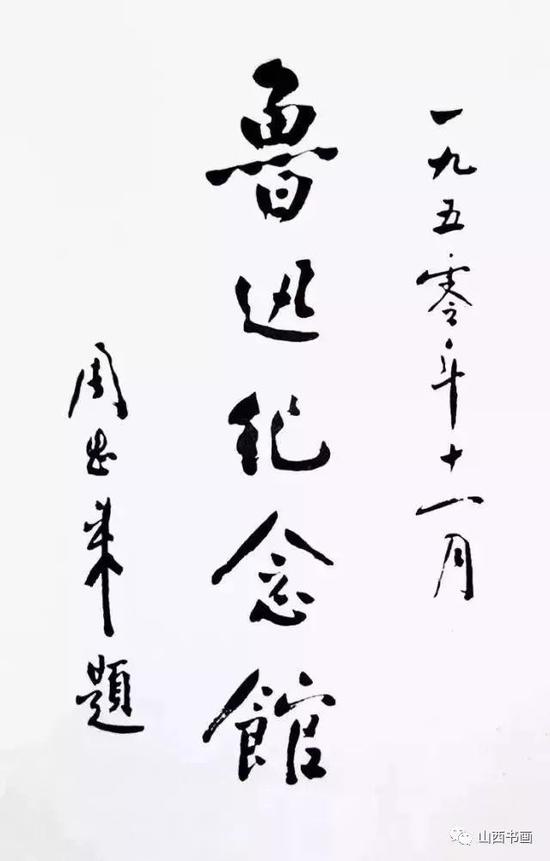 一九五零年十一月
魯迅紀念館
周恩来題
山西书画